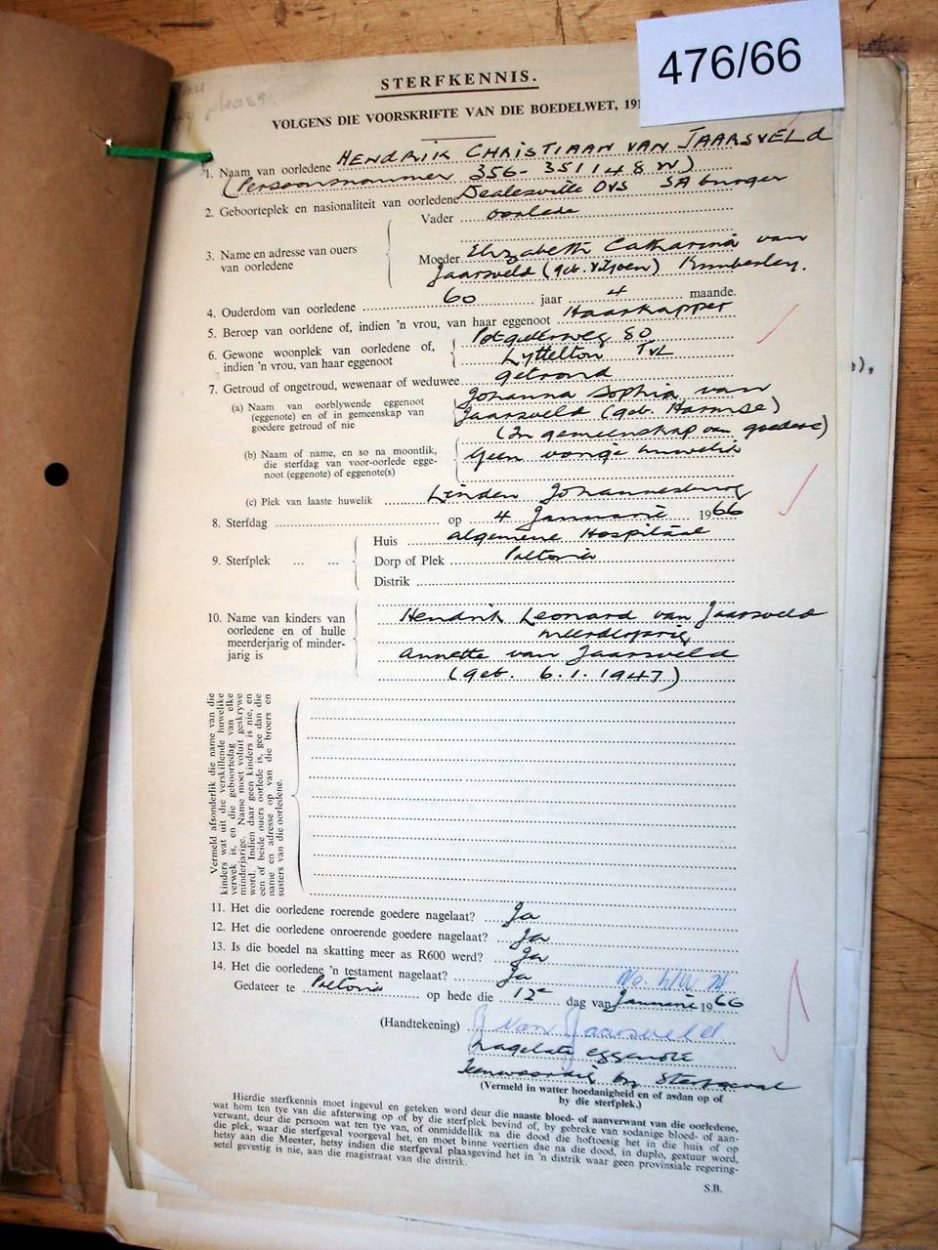 476/66
please.
STERFKENNIS.
VOLGENS DIE VOORSKRIFTE VAN DIE BOEDELWET, 191
1. Naam van oorledene HENDRIK CHRISTIAAN VAN JAARSVELD
(Persoonsnommer 356-351148 W)
2. Geboorteplek en nasionaliteit van oorledene Dealesville OVS SA burger
3. Name en adresse van ouers van oorledene
Vader oorlede
Moeder Elizabeth Catharina van
Jaarsveld (geb. Viljoen) Kimberley.
4. Ouderdom van oorledene 60 jaar 4 maande.
5. Beroep van oorldene of, indien 'n vrou, van haar eggenoot Haarkapper
6. Gewone woonplek van oorledene of, Potgieterweg 80
indien 'n vrou, van haar eggenoot Lyttelton Tvl
7. Getroud of ongetroud, wewenaar of weduwee getroud
(a) Naam van oorblywende eggenoot Johanna Sophia van
(eggenote) en of in gemeenskap van Jaarsveld (geb. Harmse)
goedere getroud of nie (In gemeenskap van goedere)
(b) Naam of name, en so na moontlik, Geen vorige huwelik
die sterfdag van voor-oorlede egge-
noot (eggenote) of eggenote(s)
(c) Plek van laaste huwelik Linden Johannesburg
8. Sterfdag op 4 Januarie 1966
9. Sterfplek ... ... Huis Algemene Hospitaal
Dorp of Plek Pretoria
Distrik
10. Name van kinders van Hendrik Leonard van Jaarsveld
oorledene en of hulle meerderjarig
meerderjarig of minder- Annette van Jaarsveld
jarig is (geb. 6.1.1947)
Vermeld afsonderlik die name van die
kinders wat uit die verskillende huwelike
verwek is, en die geboortedag van elke
minderjarige. Name moet voluit geskrywe
word. Indien daar geen kinders is nie, en
een of beide ouers oorlede is, gee dan die
name en adresse op van die broers en
susters van die oorledene.
11. Het die oorledene roerende goedere nagelaat? Ja
12. Het die oorledene onroerende goedere nagelaat? Ja
13. Is die boedel na skatting meer as R600 werd? Ja
14. Het die oorledene 'n testament nagelaat? Ja
Gedateer te Pretoria op hede die 12e dag van Januarie 1966
(Handtekening) J van Jaarsveld
Nagelate eggenote
Teenwoordig by sterfgeval
(Vermeld in watter hoedanigheid en of asdan op of
by die sterfplek.)
Hierdie sterfkennis moet ingevul en geteken word deur die naaste bloed- of aanverwant van die oorledene,
wat hom ten tye van die afsterwing op of by die sterfplek bevind of, by gebreke van sodanige bloed- of aan-
verwant, deur die persoon wat ten tye van, of onmiddellik na die dood die hoftoesig het in die huis of op
die plek, waar die sterfgeval voorgeval het, en moet binne veertien dae na die dood, in duplo, gestuur word,
hetsy aan die Meester, hetsy indien die sterfgeval plaasgevind het in 'n distrik waar geen provinsiale regering-
setel gevestig is nie, aan die magistraat van die distrik.
S.B.